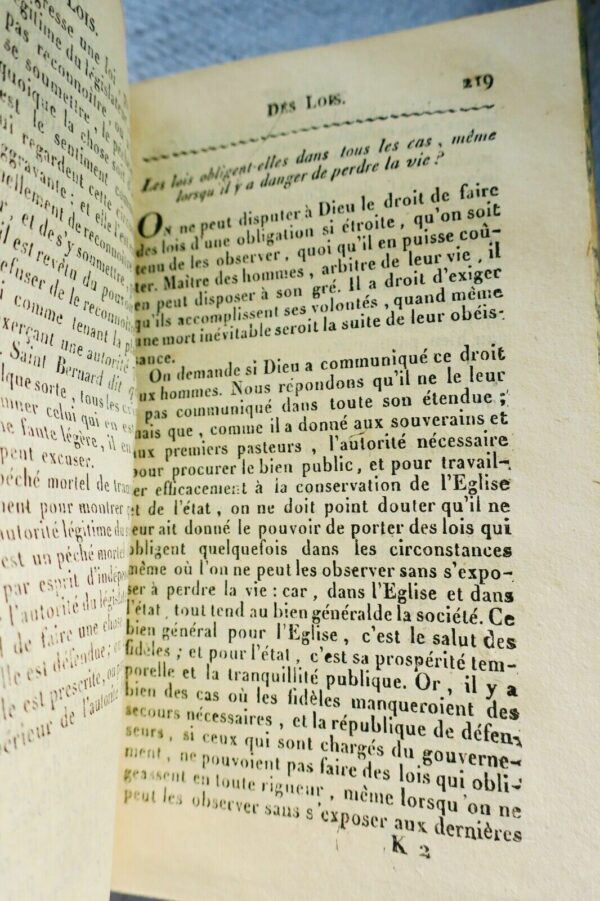 LOIS.
gresse une loi
gitime du législat
pas reconnoître, ou
se soumettre, le p
quoique la chose soit
est le sentiment com
ui regardent cette
ggravante; et elle l'
nellement de reconno
r, et de s'y soumettre
il est revêtu du pouvo
efuser de le reconno
i comme tenant la p
xerçant une autorité
. Saint Bernard dit q
lque sorte, tous les
mner celui qui en est
ne faute légère, il en
pent excuser.
péché mortel de tran
ment pour montrer
autorité légitime du
est un péché mortel
par esprit d'indépe
l'autorité du législ
l de faire une chose
lle est défendue; o
le est prescrite, ou p
érieur de l'autorité
DES LOIS.
219
Les lois obligent-elles dans tous les cas, même
lorsqu'il y a danger de perdre la vie?
ON ne peut disputer à Dieu le droit de faire
des lois d'une obligation si étroite, qu'on soit
tenu de les observer, quoi qu'il en puisse coû-
ter. Maître des hommes, arbitre de leur vie, il
en peut disposer à son gré. Il a droit d'exiger
qu'ils accomplissent ses volontés, quand même
une mort inévitable seroit la suite de leur obéis-
sance.
On demande si Dieu a communiqué ce droit
aux hommes. Nous répondons qu'il ne le leur
pas communiqué dans toute son étendue;
mais que, comme il a donné aux souverains et
aux premiers pasteurs, l'autorité nécessaire
pour procurer le bien public, et pour travail-
er efficacement à la conservation de l'Eglise
et de l'état, on ne doit point douter qu'il ne
eur ait donné le pouvoir de porter des lois qui
obligent quelquefois dans les circonstances
même où l'on ne peut les observer sans s'expo-
ser à perdre la vie: car, dans l'Eglise et dans
l'état, tout tend au bien général de la société. Ce
bien général pour l'Eglise, c'est le salut des
fidèles; et pour l'état, c'est sa prospérité tem-
porelle et la tranquillité publique. Or, il y a
bien des cas où les fidèles manqueroient des
secours nécessaires, et la république de défen-
seurs, si ceux qui sont chargés du gouverne-
ment, ne pouvoient pas faire des lois qui obli-
geassent en toute rigueur, même lorsqu'on ne
peut les observer sans s'exposer aux dernières
K 2